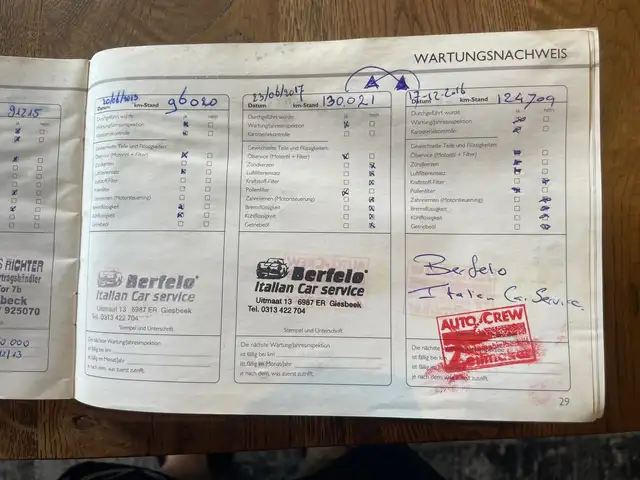 WARTUNGSNACHWEIS
91215
S RICHTER
rtragshändler
or 7b
beck
925070
Datum km-Stand 96020
Durchgeführt wurde:
Wartung/Jahresinspektion
Karosseriekontrolle
Gewechselte Teile und Flüssigkeiten:
Ölservice (Motoröl + Filter)
Zündkerzen
Luftfiltereinsatz
Kraftstoff-Filter
Pollenfilter
Zahnriemen (Motorsteuerung)
Bremsflüssigkeit
Kühlflüssigkeit
Getriebeöl
Berfelo
Italian Car service
Uitmaat 13 6987 ER Giesbeek
Tel. 0313 422 704
Stempel und Unterschrift
Die nächste Wartung/Jahresinspektion
ist fällig bei km
ist fällig im Monat/Jahr
je nach dem, was zuerst zutrifft.
23/06/2017
Datum km-Stand 130021
Durchgeführt wurde:
Wartung/Jahresinspektion
Karosseriekontrolle
Gewechselte Teile und Flüssigkeiten:
Ölservice (Motoröl + Filter)
Zündkerzen
Luftfiltereinsatz
Kraftstoff-Filter
Pollenfilter
Zahnriemen (Motorsteuerung)
Bremsflüssigkeit
Kühlflüssigkeit
Getriebeöl
Berfelo
Italian Car service
Uitmaat 13 6987 ER Giesbeek
Tel. 0313 422 704
Stempel und Unterschrift
Die nächste Wartung/Jahresinspektion
ist fällig bei km
ist fällig im Monat/Jahr
je nach dem, was zuerst zutrifft.
17-12-2016
Datum km-Stand 124709
Durchgeführt wurde:
Wartung/Jahresinspektion
Karosseriekontrolle
Gewechselte Teile und Flüssigkeiten:
Ölservice (Motoröl + Filter)
Zündkerzen
Luftfiltereinsatz
Kraftstoff-Filter
Pollenfilter
Zahnriemen (Motorsteuerung)
Bremsflüssigkeit
Kühlflüssigkeit
Getriebeöl
Berfelo
Italian Car Service
AUTO CREW
Die nächste
ist fällig bei
ist fällig im
je nach dem, was zuerst zutrifft.
29